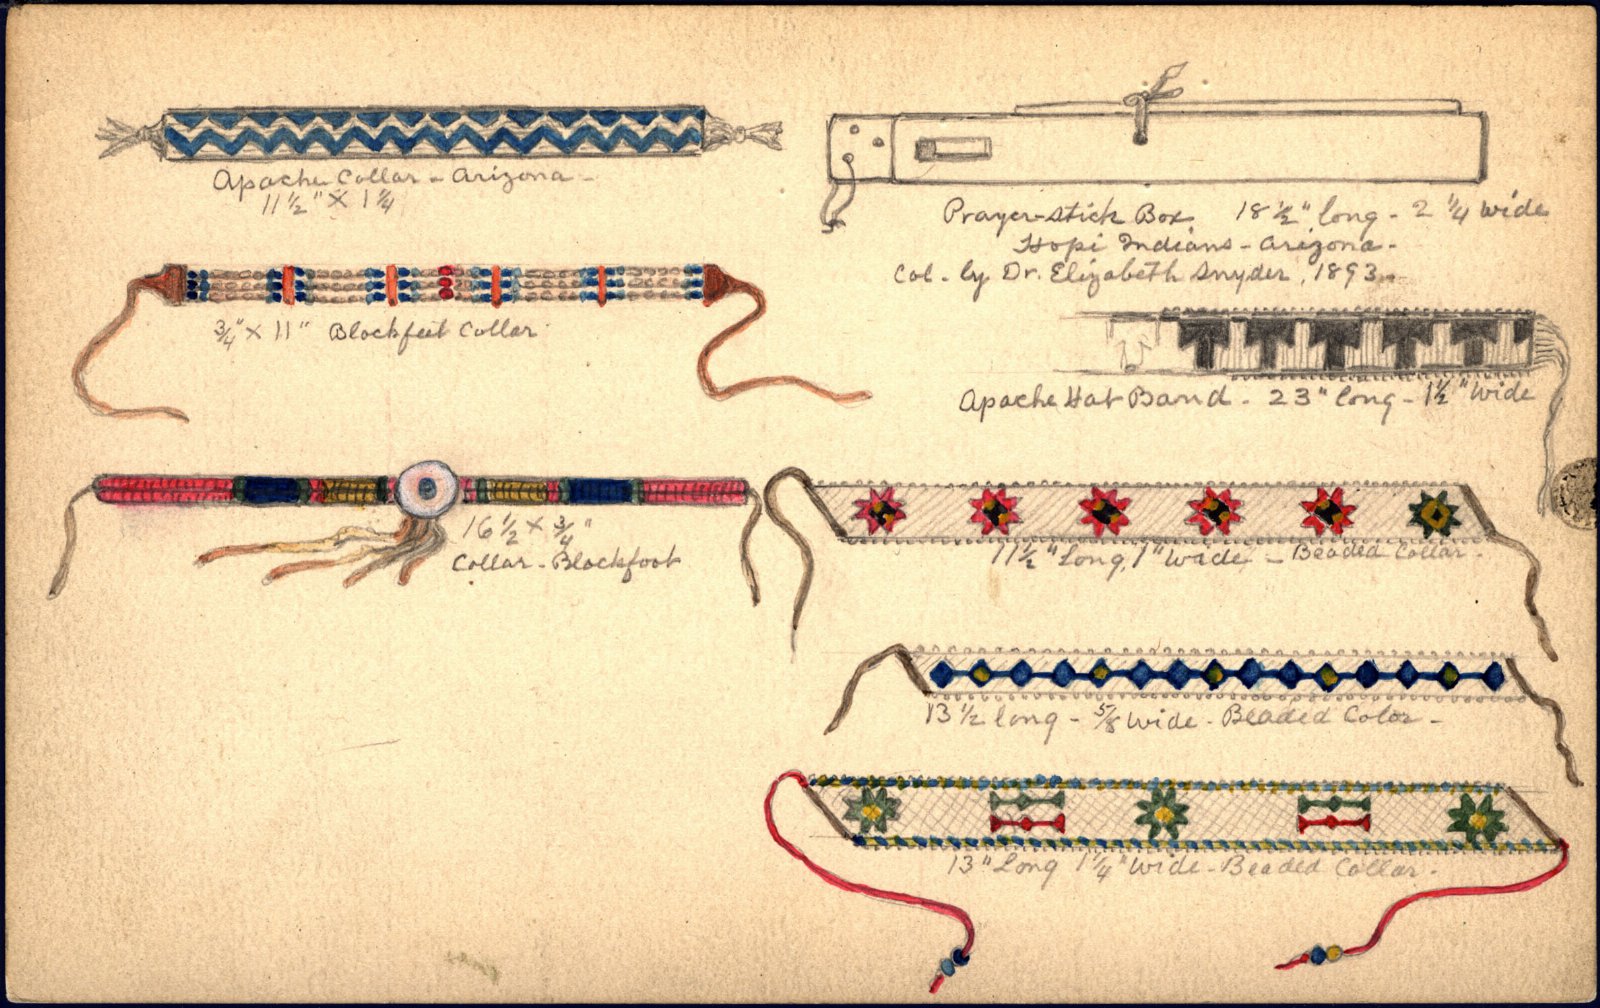 Apache Collar - Arizona -
11 1/2" X 1 1/4
3/4" X 11" Blackfeet Collar
16 1/2 X 3/4"
Collar - Blackfoot
Prayer-stick Box 18 1/2" long - 2 1/4 wide
Hopi Indians - Arizona -
Col. by Dr. Elizabeth Snyder, 1893 -
Apache Hat Band - 23" long - 1 1/2" wide
11 1/2" Long, 1" wide - Beaded Collar -
13 1/2 long - 5/8 wide - Beaded Color -
13" Long 1 1/4" wide - Beaded Collar -